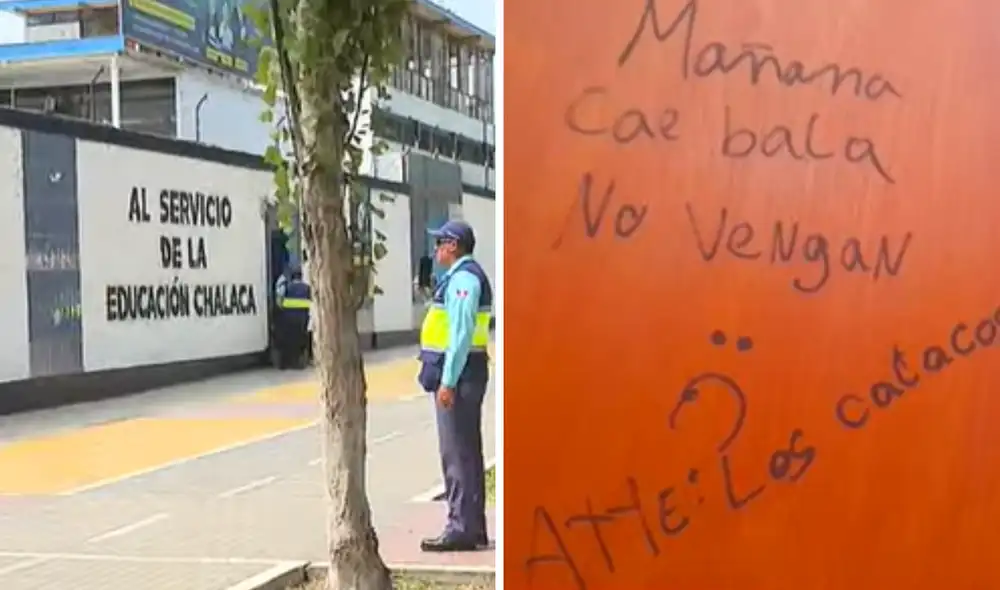 AL SERVICIO
DE LA
EDUCACIÓN CHALACA
Mañana
Cae bala
No VeNgaN
ATTE: Los catacos